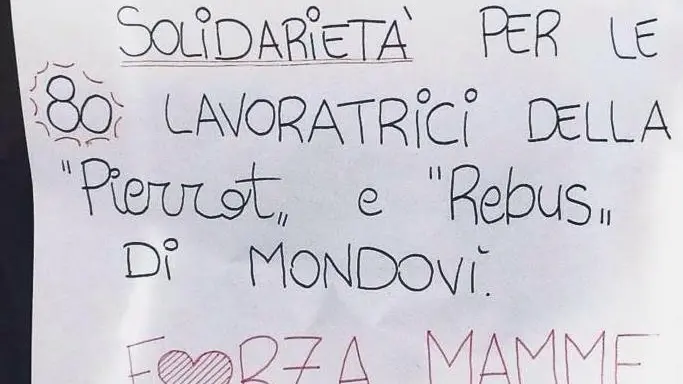 SOLIDARIETÀ PER LE
80 LAVORATRICI DELLA
"Pierrot„ e "Rebus„
DI MONDOVÌ.
FORZA MAMME